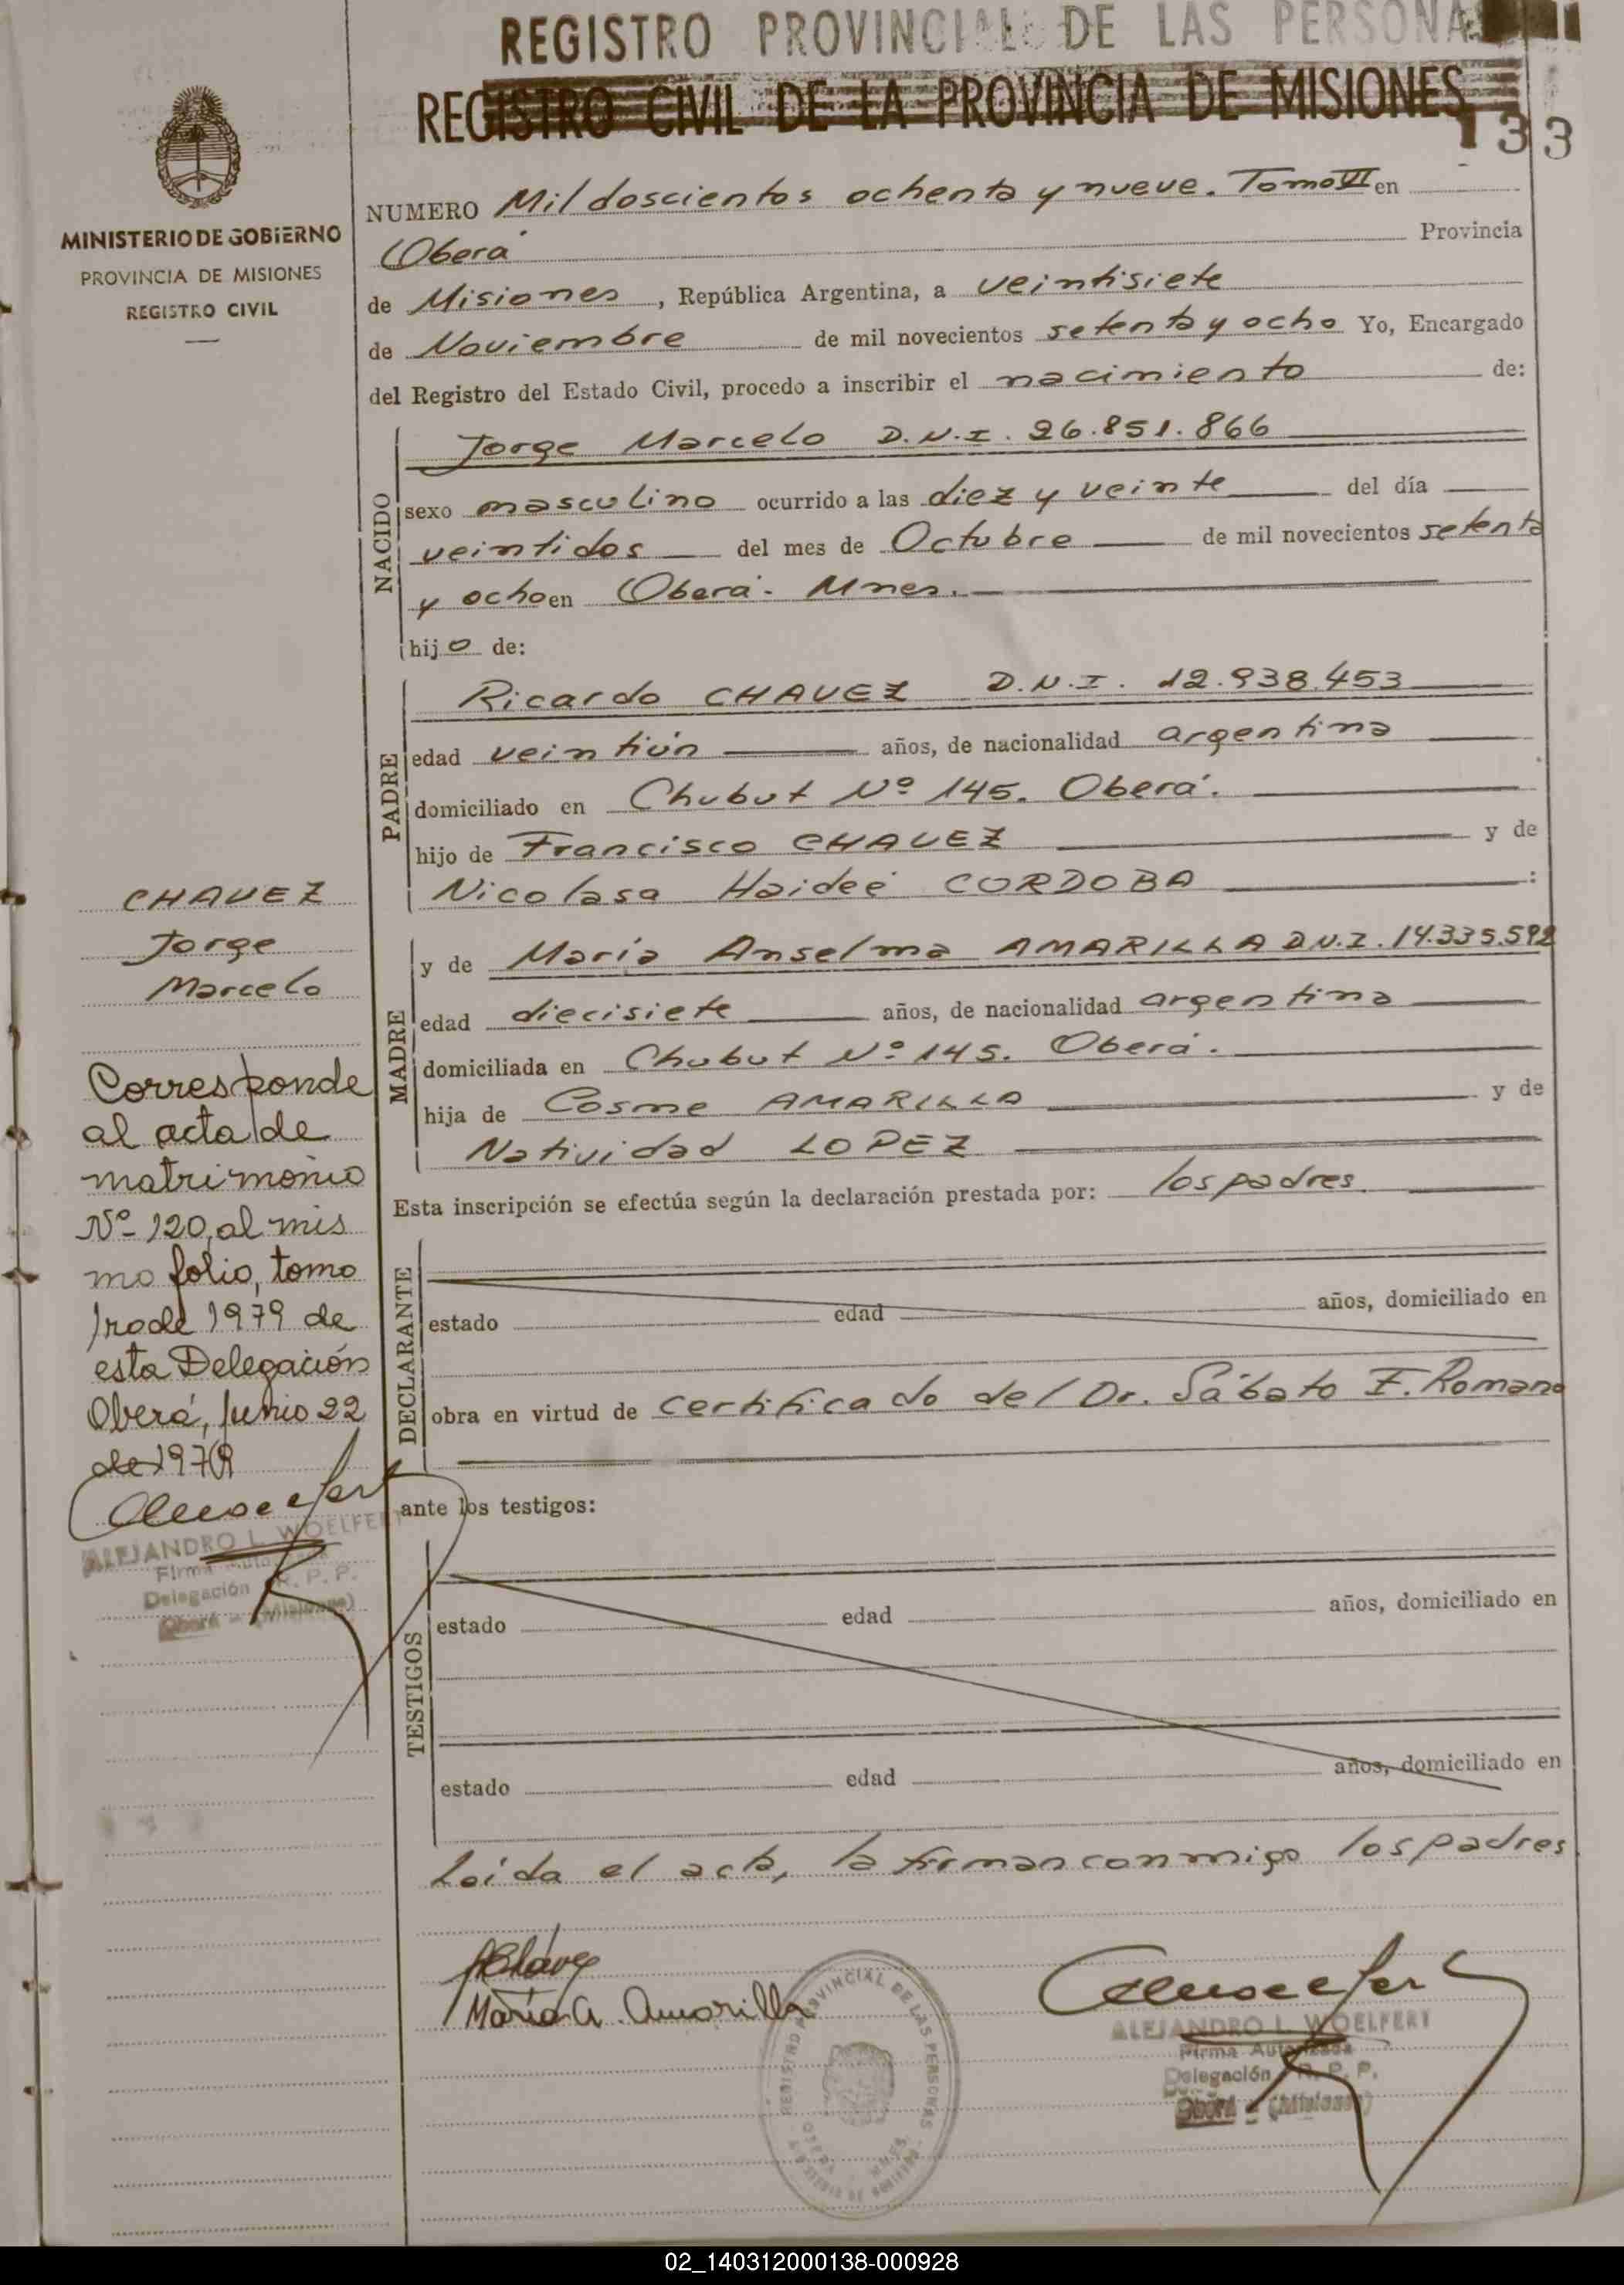 REGISTRO PROVINCIAL DE LAS PERSONAS
REGISTRO CIVIL DE LA PROVINCIA DE MISIONES
133
MINISTERIO DE GOBIERNO
PROVINCIA DE MISIONES
REGISTRO CIVIL
NUMERO Mil doscientos ochenta y nueve. Tomo VI en
Oberá Provincia
de Misiones, República Argentina, a veintisiete
de Noviembre de mil novecientos setenta y ocho Yo, Encargado
del Registro del Estado Civil, procedo a inscribir el nacimiento de:
NACIDO
Jorge Marcelo D.N.I. 26.851.866
sexo masculino ocurrido a las diez y veinte del día
veintidos del mes de Octubre de mil novecientos setenta
y ocho en Oberá. Mnes.
hijo de:
PADRE
Ricardo CHAVEZ D.N.I. 12.938.453
edad veintiún años, de nacionalidad argentina
domiciliado en Chubut Nº 145. Oberá.
hijo de Francisco CHAVEZ y de
Nicolasa Haideé CORDOBA :
MADRE
y de María Anselma AMARILLA D.N.I. 14.335.592
edad diecisiete años, de nacionalidad argentina
domiciliada en Chubut Nº 145. Oberá.
hija de Cosme AMARILLA y de
Natividad LOPEZ
Esta inscripción se efectúa según la declaración prestada por: los padres
DECLARANTE
estado edad años, domiciliado en
obra en virtud de certificado del Dr. Sábato F. Romano
ante los testigos:
TESTIGOS
estado edad años, domiciliado en
estado edad años, domiciliado en
Leída el acta, la firman conmigo los padres
CHAVEZ
Jorge
Marcelo
Corresponde
al acta de
matrimonio
Nº 120, al mis
mo folio, tomo
1ro de 1979 de
esta Delegación
Oberá, Junio 22
de 1979
ALEJANDRO L. WOELFERT
Firma Autorizada
Delegación R. P. P.
Oberá - (Misiones)
RChávez
María A. Amarilla
REGISTRO PROVINCIAL DE LAS PERSONAS
ALEJANDRO L. WOELFERT
Firma Autorizada
Delegación R. P. P.
Oberá - (Misiones)
02_140312000138-000928